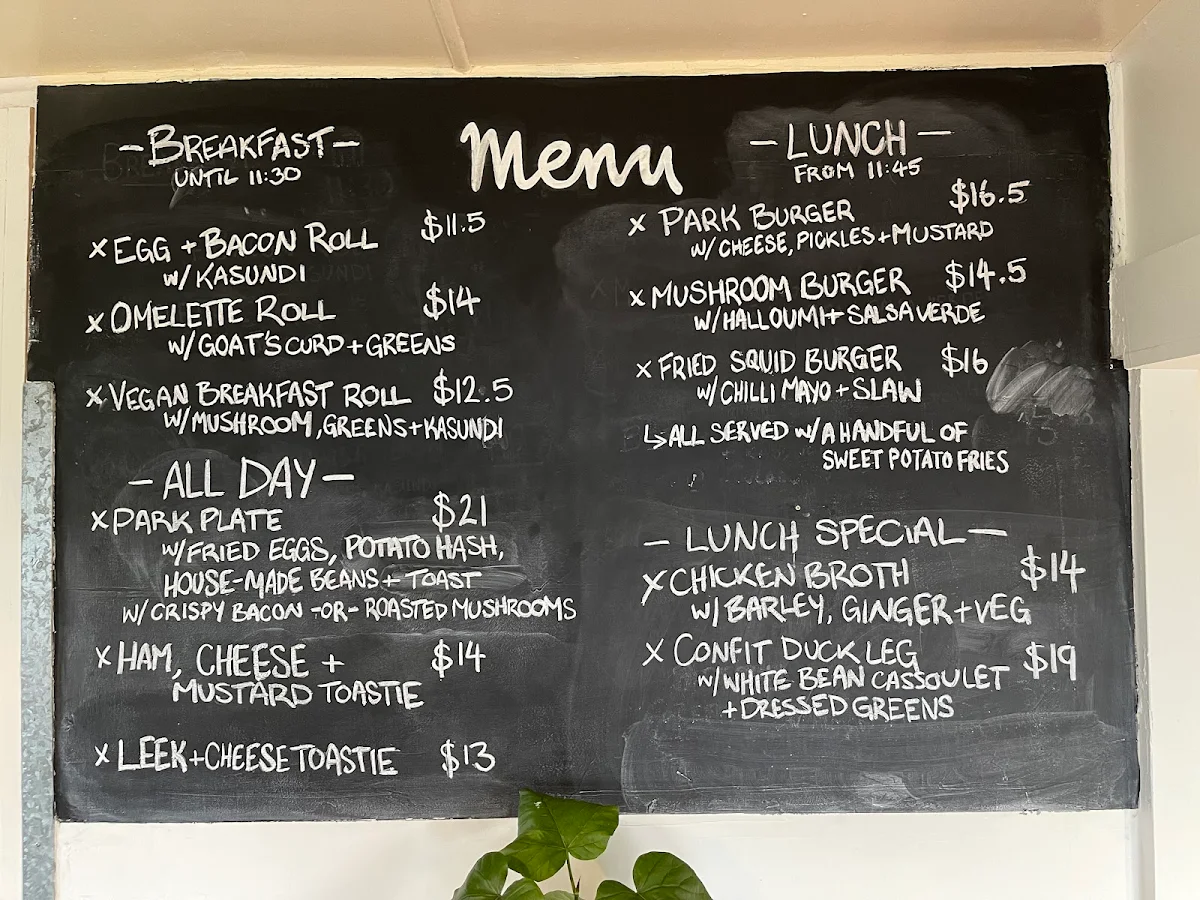 Menu
- BREAKFAST -
UNTIL 11:30
x EGG + BACON ROLL $11.5
w/ KASUNDI
x OMELETTE ROLL $14
w/ GOAT'S CURD + GREENS
x VEGAN BREAKFAST ROLL $12.5
w/ MUSHROOM, GREENS + KASUNDI
- ALL DAY -
x PARK PLATE $21
w/ FRIED EGGS, POTATO HASH,
HOUSE-MADE BEANS + TOAST
w/ CRISPY BACON -OR- ROASTED MUSHROOMS
x HAM, CHEESE + $14
MUSTARD TOASTIE
x LEEK + CHEESE TOASTIE $13
- LUNCH -
FROM 11:45
x PARK BURGER $16.5
w/ CHEESE, PICKLES + MUSTARD
x MUSHROOM BURGER $14.5
w/ HALLOUMI + SALSA VERDE
x FRIED SQUID BURGER $16
w/ CHILLI MAYO + SLAW
↳ ALL SERVED w/ A HANDFUL OF
SWEET POTATO FRIES
- LUNCH SPECIAL -
x CHICKEN BROTH $14
w/ BARLEY, GINGER + VEG
x CONFIT DUCK LEG $19
w/ WHITE BEAN CASSOULET
+ DRESSED GREENS